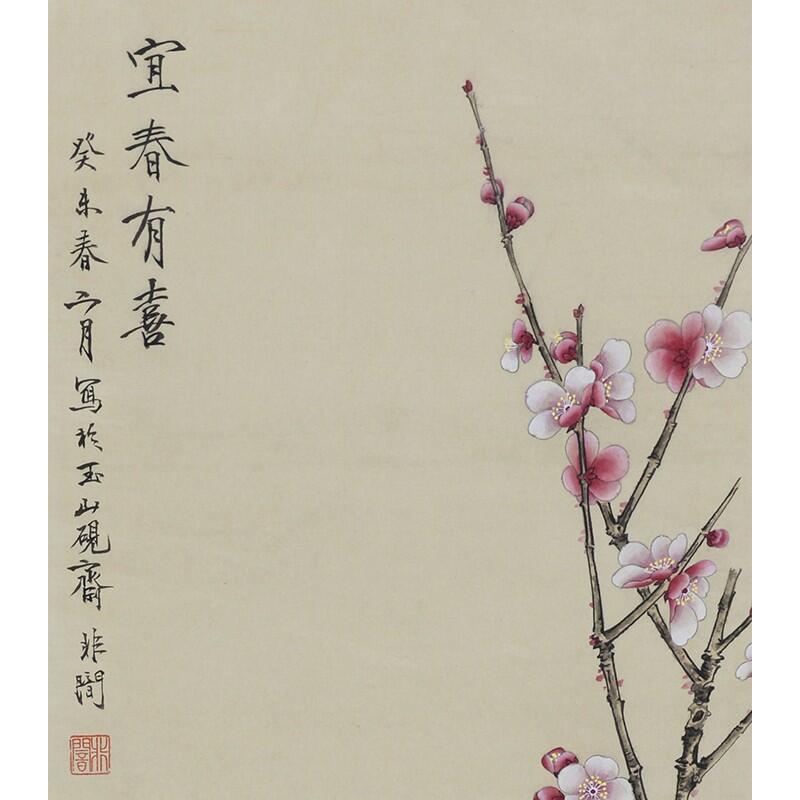 宜春有喜
癸未春二月寫於玉山硯齋 非闇
非闇